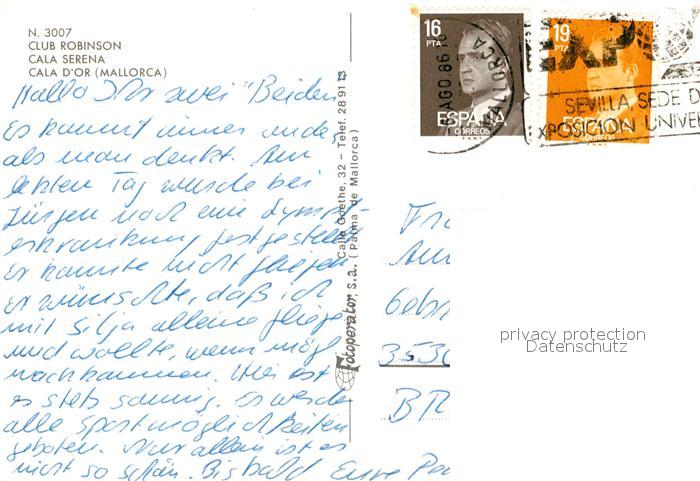 N. 3007
CLUB ROBINSON
CALA SERENA
CALA D'OR (MALLORCA)
Hallo Ihr zwei "Beiden"
Es kommt immer anders
als man denkt. Am
letzten Tag wurde bei
Jürgen noch eine Lymph-
erkrankung festgestellt
Er konnte nicht fliegen
Er wünschte, daß ich
mit Silja alleine fliege
und wollte, wenn mögl
nachkommen. Hier ist
es stets sonnig. Es werden
alle Sportmöglichkeiten
geboten. Nur allein ist es
nicht so schön. Bis bald Eure
Fotoperator s.a. Calle Goethe, 32 – Telef. 28 91
(Palma de Mallorca)
16
PTA
ESPAÑA
CORREOS
AGO. 86
MALLORCA
19
PTA
ESPAÑA
CORREOS
EXPO
SEVILLA, SEDE D
EXPOSICION UNIVER
353
BR
privacy protection
Datenschutz